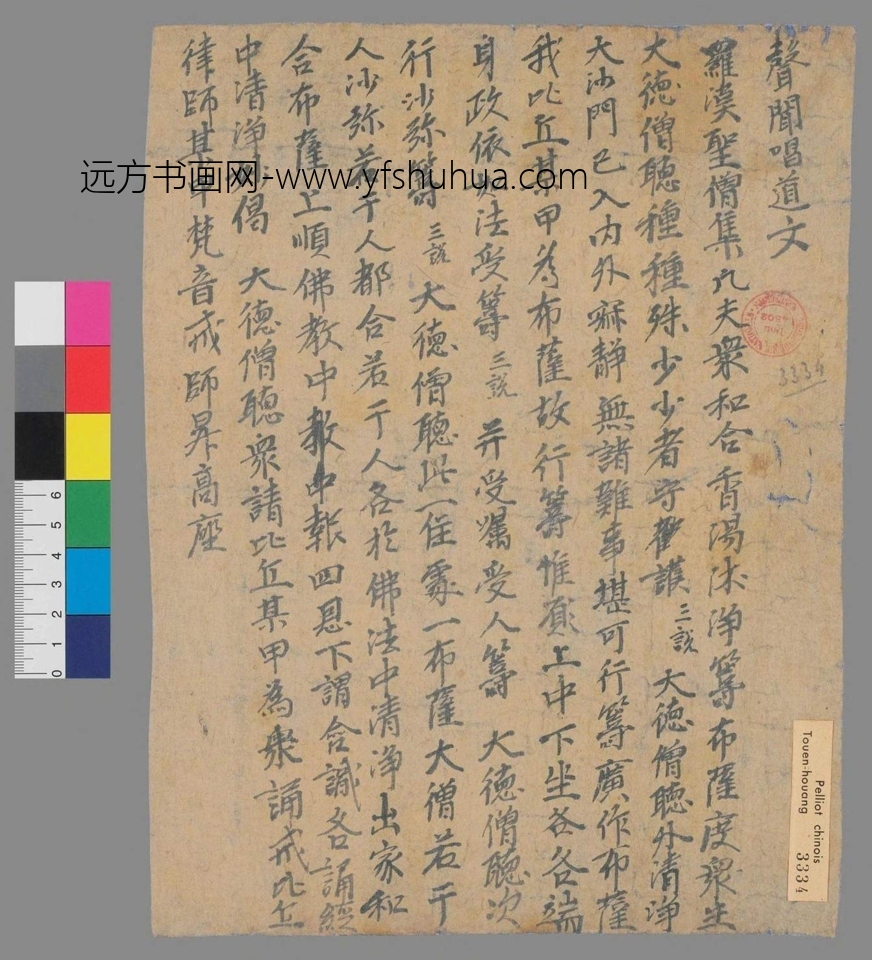 聲聞唱道文
羅漢聖僧集凡夫衆和合香湯沐淨籌布薩度衆生
大德僧聽種種殊少少者守護 三説 大德僧聽外清淨
大沙門已入内外寂靜無諸難事堪可行籌廣作布薩
我比丘某甲為布薩故行籌惟願上中下坐各各端
身政依如法受籌 三説 并受囑受人籌 大德僧聽次
行沙弥籌 三説 大德僧聽此一住處一布薩大僧若干
人沙弥若干人都合若干人各於佛法中清淨出家和
合布薩上順佛教中報四恩下謂含識各誦經
中清淨偈 大德僧聽衆請比丘某甲為衆誦戒比丘
律師某甲梵音戒師昇高座
3334
Pelliot chinois
Touen-houang 3334
远方书画网-www.yfshuhua.com
0 1 2 3 4 5 6